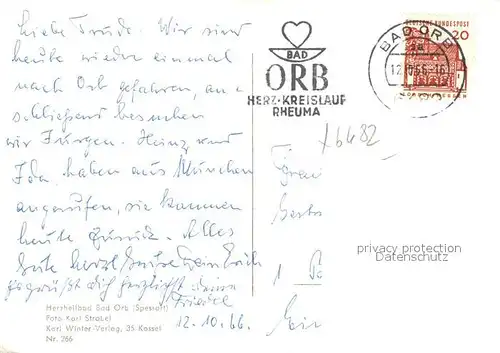 liebe Trude. Wir sind
heute wieder einmal
nach Orb gefahren, an-
schliessend besuchen
wir Jürgen. Heinz und
Ida haben aus München
angerufen, sie kommen
heute zurück. Alles
Gute herzl. Grüße Dein Erich
es grüßt dich herzlichst deine
Friedel
12.10.66.
Herzheilbad Bad Orb (Spessart)
Foto Karl Strabel
Karl Winter-Verlag, 35 Kassel
Nr. 266
BAD
ORB
HERZ-KREISLAUF
RHEUMA
DEUTSCHE BUNDESPOST
20
BAD ORB
x6482
Frau
1
privacy protection
VILLAGE